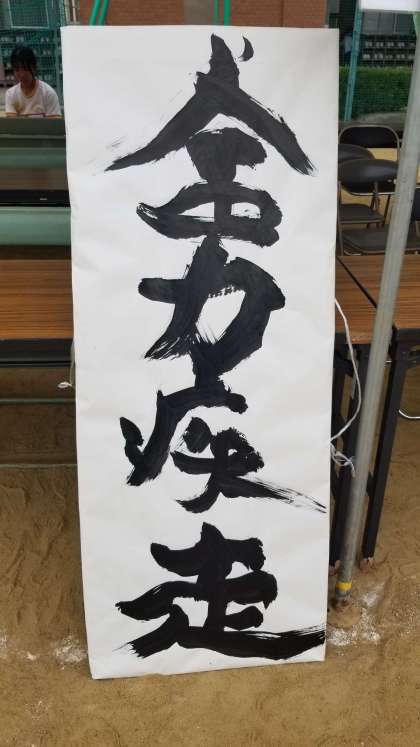 全力疾走